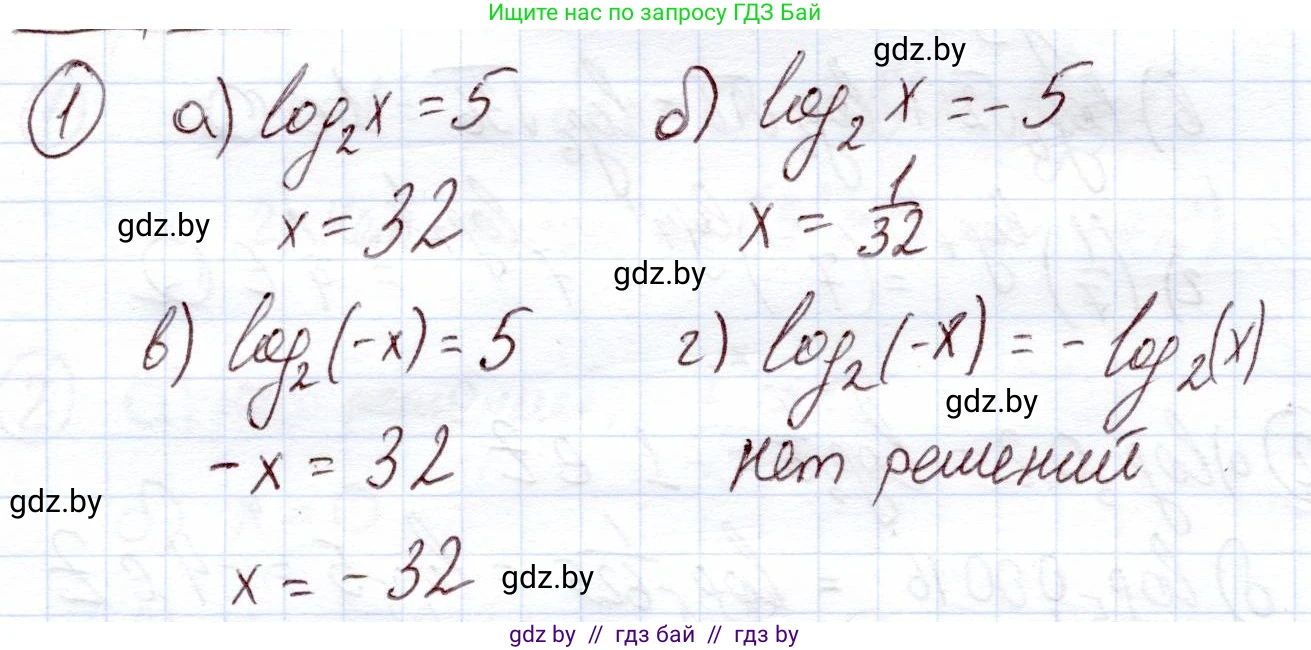 Ищите нас по запросу ГДЗ Бай
gdz.by
1 а) log₂x = 5 б) log₂ x = - 5
gdz.by x = 32 x = 1/32
gdz.by
в) log₂(-x) = 5 г) log₂(-x) = - log₂(x)
gdz.by
-x = 32 нет решений
gdz.by
x = - 32 gdz.by
gdz by // гдз бай // гдз by